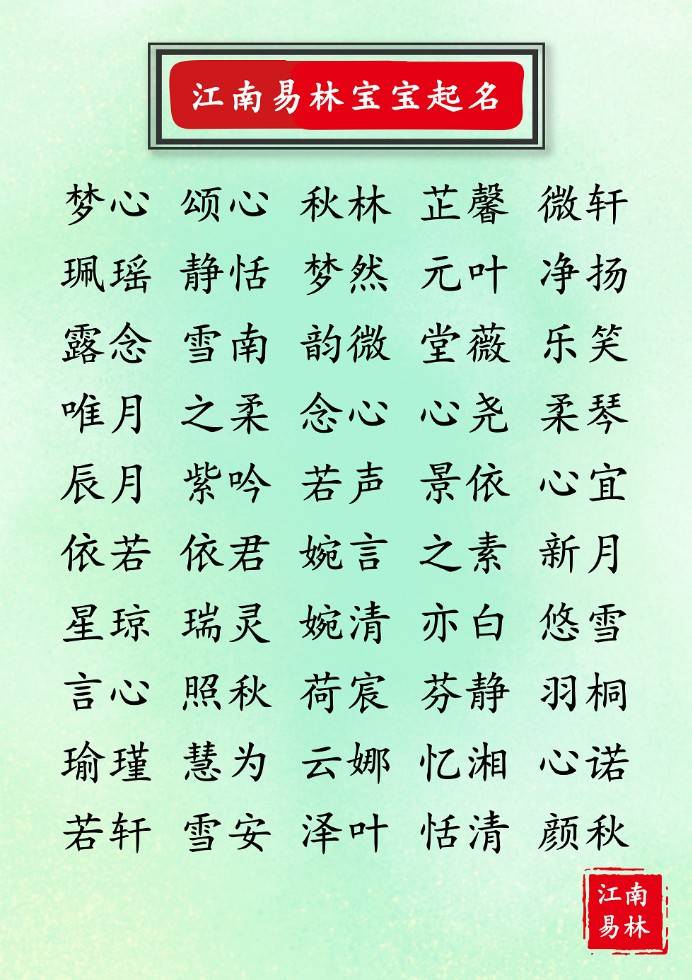 江南易林宝宝起名
梦心 颂心 秋林 芷馨 微轩
珮瑶 静恬 梦然 元叶 净扬
露念 雪南 韵微 堂薇 乐笑
唯月 之柔 念心 心尧 柔琴
辰月 紫吟 若声 景依 心宜
依若 依君 婉言 之素 新月
星琼 瑞灵 婉清 亦白 悠雪
言心 照秋 荷宸 芬静 羽桐
瑜瑾 慧为 云娜 忆湘 心诺
若轩 雪安 泽叶 恬清 颜秋
江南
易林